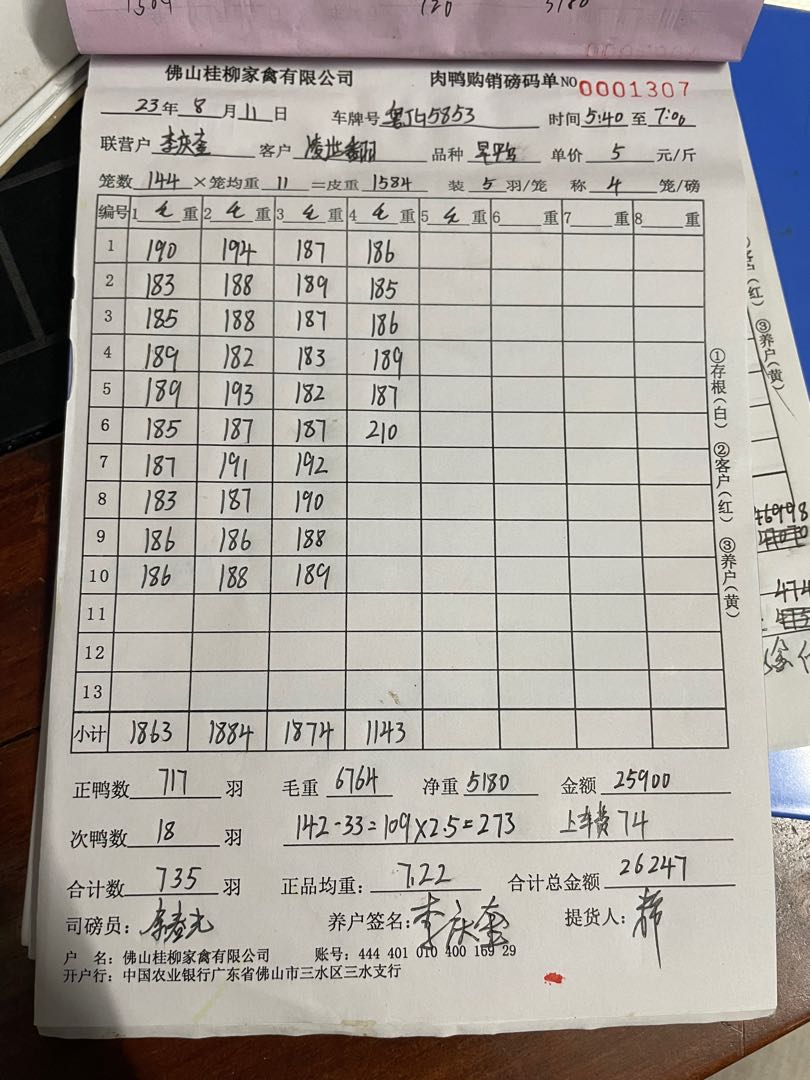 1509 120 5180
佛山桂柳家禽有限公司 肉鸭购销磅码单 NO 0001307
23年 8月11日 车牌号 粤JG5853 时间 5:40 至 7:00
联营户 李庆奎 客户 品种 单价 5 元/斤
笼数 144 ×笼均重 11 =皮重 1584 装 5 羽/笼 称 4 笼/磅
编号 1 毛 重 2 毛 重 3 毛 重 4 毛 重 5 毛 重 6 重 7 重 8 重
1 190 194 187 186
2 183 188 189 185
3 185 188 187 186
4 189 182 183 189
5 189 193 182 187
6 185 187 187 210
7 187 191 192
8 183 187 190
9 186 186 188
10 186 188 189
11
12
13
小计 1863 1884 1874 1143
①存根(白) ②客户(红) ③养户(黄)
正鸭数 717 羽 毛重 6764 净重 5180 金额 25900
次鸭数 18 羽 142-33=109×2.5=273 上车费 74
合计数 735 羽 正品均重: 7.22 合计总金额 26247
司磅员: 养户签名: 李庆奎 提货人:
户 名: 佛山桂柳家禽有限公司 账号: 444 401 010 400 169 29
开户行: 中国农业银行广东省佛山市三水区三水支行
(红) ③养户(黄)